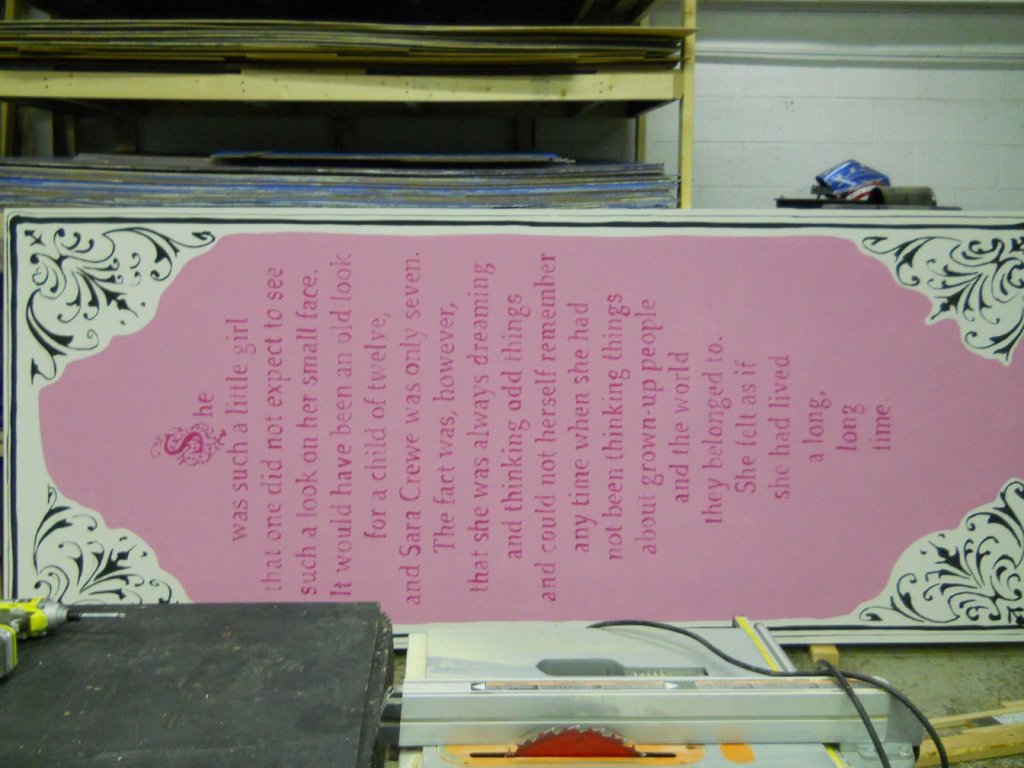 She
was such a little girl
that one did not expect to see
such a look on her small face.
It would have been an old look
for a child of twelve,
and Sara Crewe was only seven.
The fact was, however,
that she was always dreaming
and thinking odd things
and could not herself remember
any time when she had
not been thinking things
about grown-up people
and the world
they belonged to.
She felt as if
she had lived
a long,
long
time.